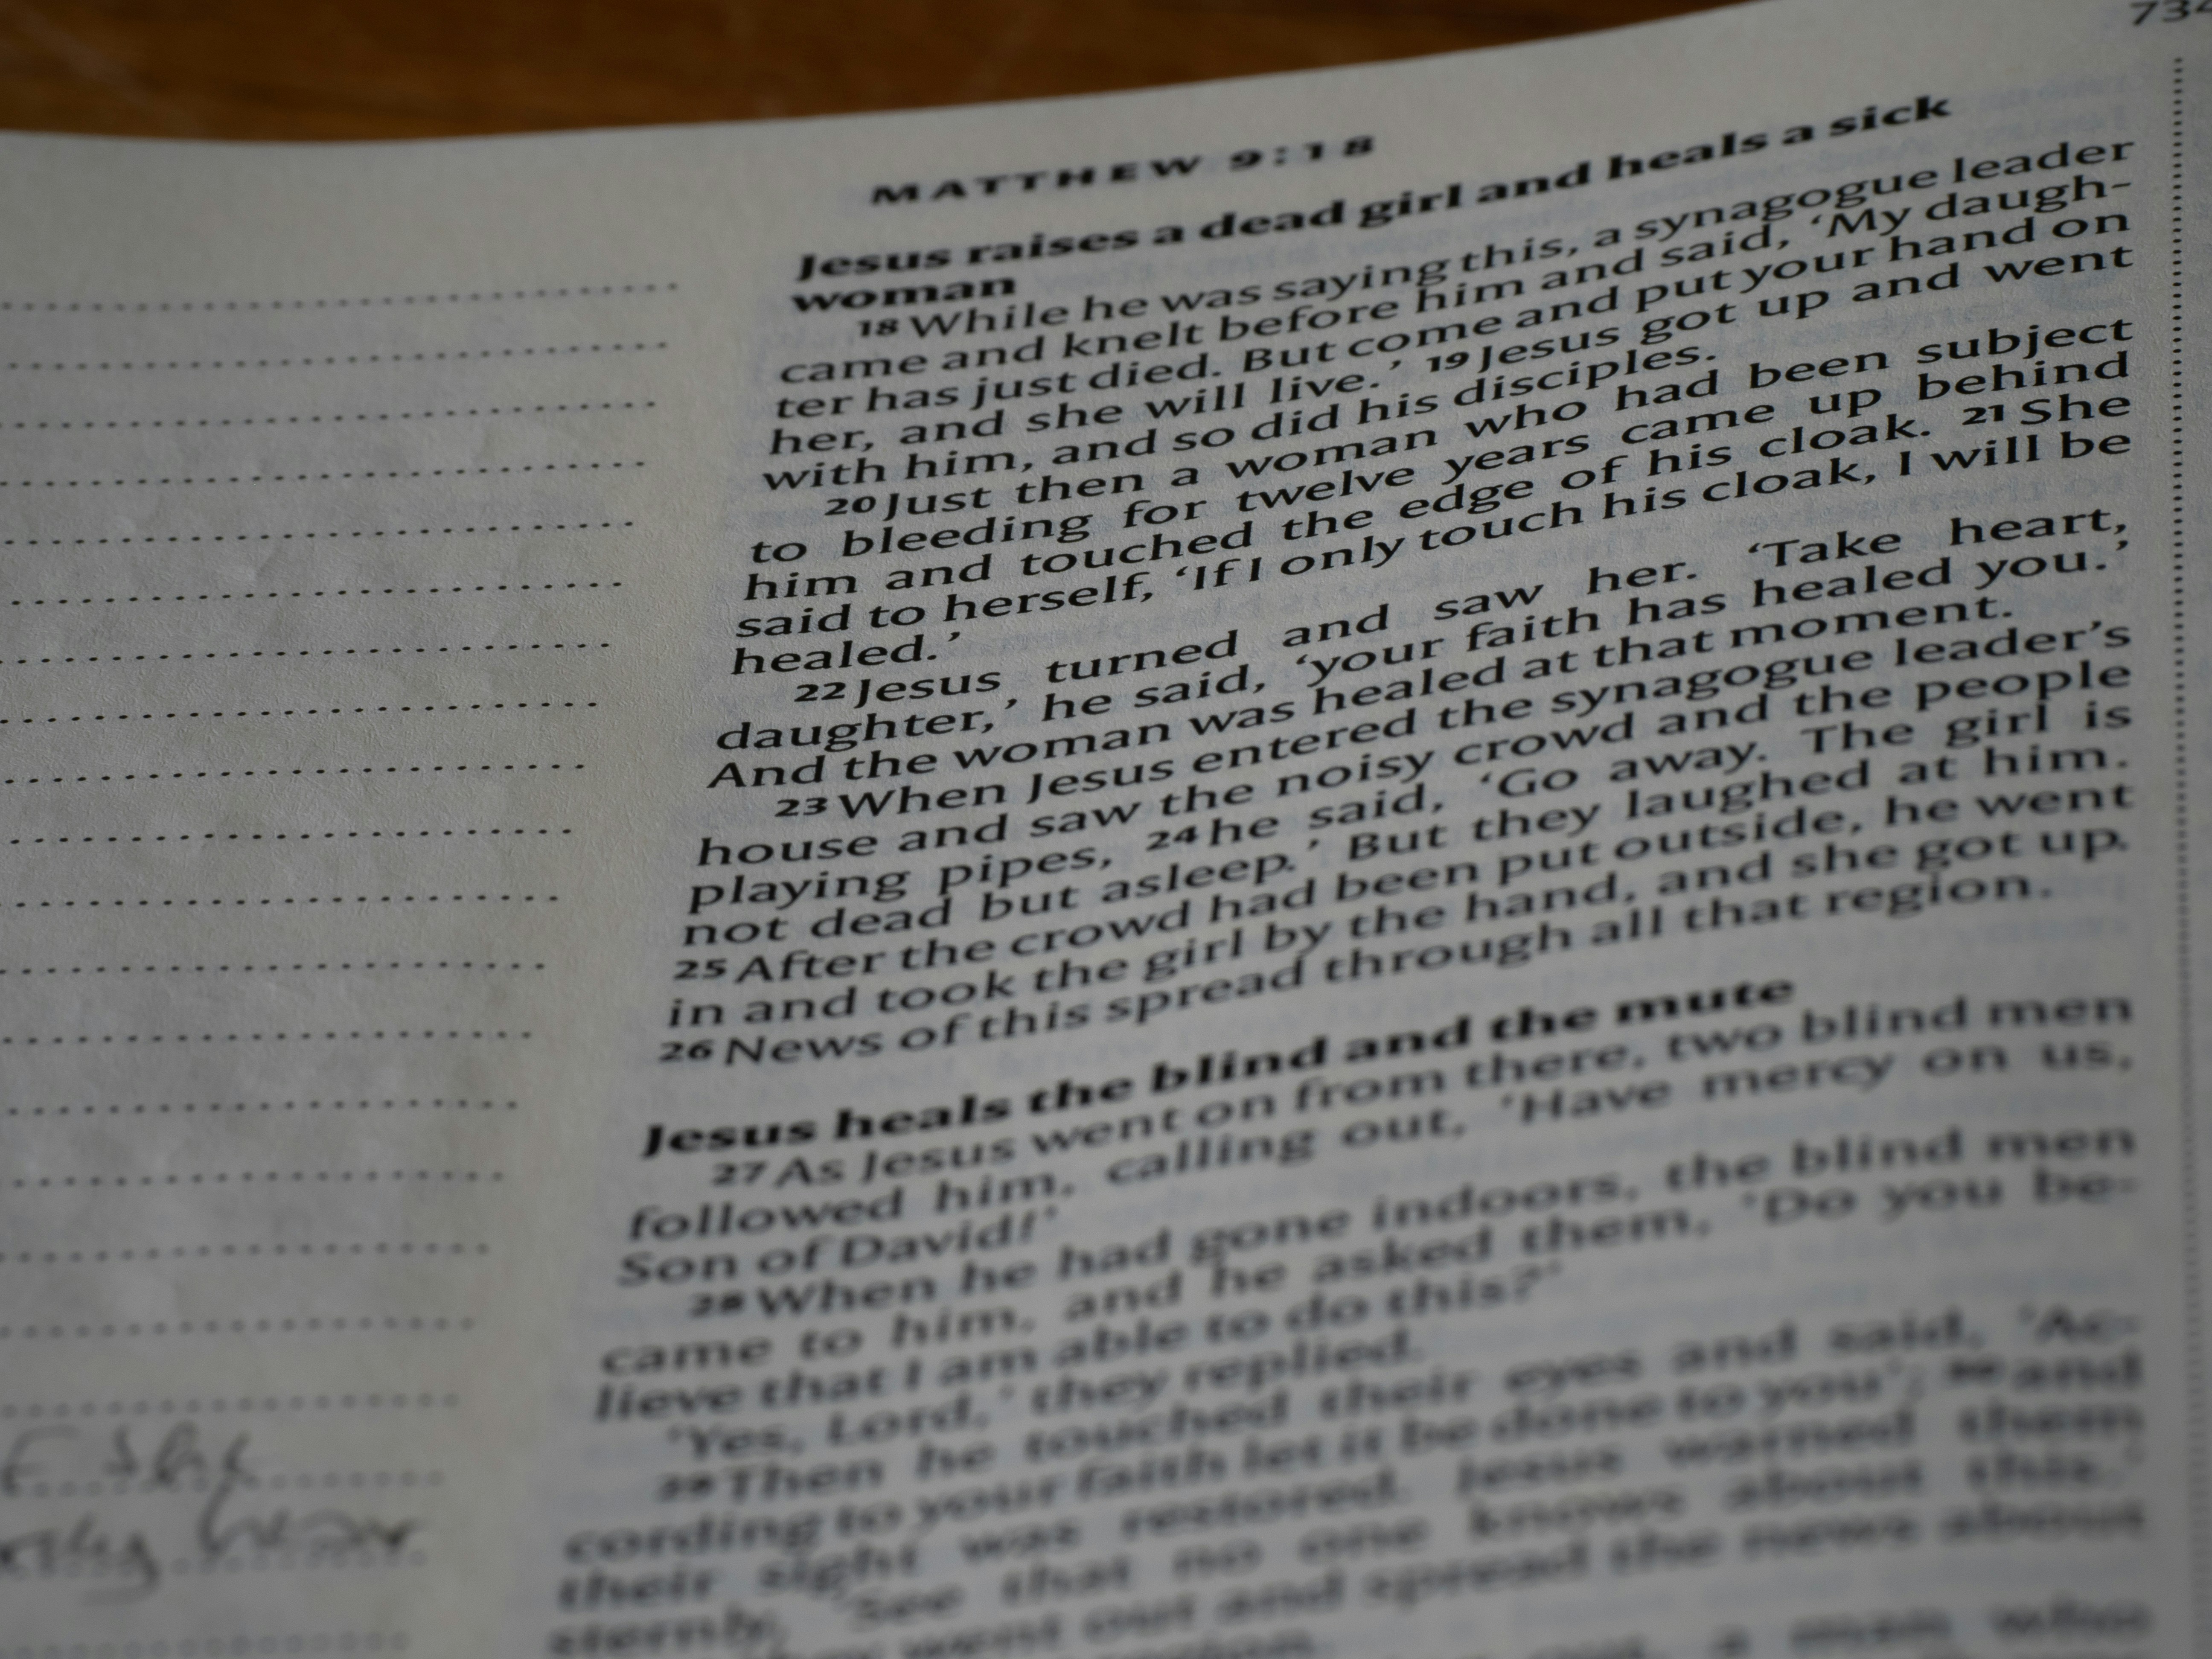 MATTHEW 9:18
Jesus raises a dead girl and heals a sick
woman
18 While he was saying this, a synagogue leader
came and knelt before him and said, ‘My daugh-
ter has just died. But come and put your hand on
her, and she will live.’ 19 Jesus got up and went
with him, and so did his disciples.
20 Just then a woman who had been subject
to bleeding for twelve years came up behind
him and touched the edge of his cloak. 21 She
said to herself, ‘If I only touch his cloak, I will be
healed.’
22 Jesus turned and saw her. ‘Take heart,
daughter,’ he said, ‘your faith has healed you.’
And the woman was healed at that moment.
23 When Jesus entered the synagogue leader’s
house and saw the noisy crowd and the people
playing pipes, 24 he said, ‘Go away. The girl is
not dead but asleep.’ But they laughed at him.
25 After the crowd had been put outside, he went
in and took the girl by the hand, and she got up.
26 News of this spread through all that region.
Jesus heals the blind and the mute
27 As Jesus went on from there, two blind men
followed him, calling out, ‘Have mercy on us,
Son of David!’
28 When he had gone indoors, the blind men
came to him, and he asked them, ‘Do you be-
lieve that I am able to do this?’
‘Yes, Lord,’ they replied.
29 Then he touched their eyes and said, ‘Ac-
cording to your faith let it be done to you’; 30 and
their sight was restored. Jesus warned them
sternly, ‘See that no one knows about this.’
went out and spread the news about
a man who